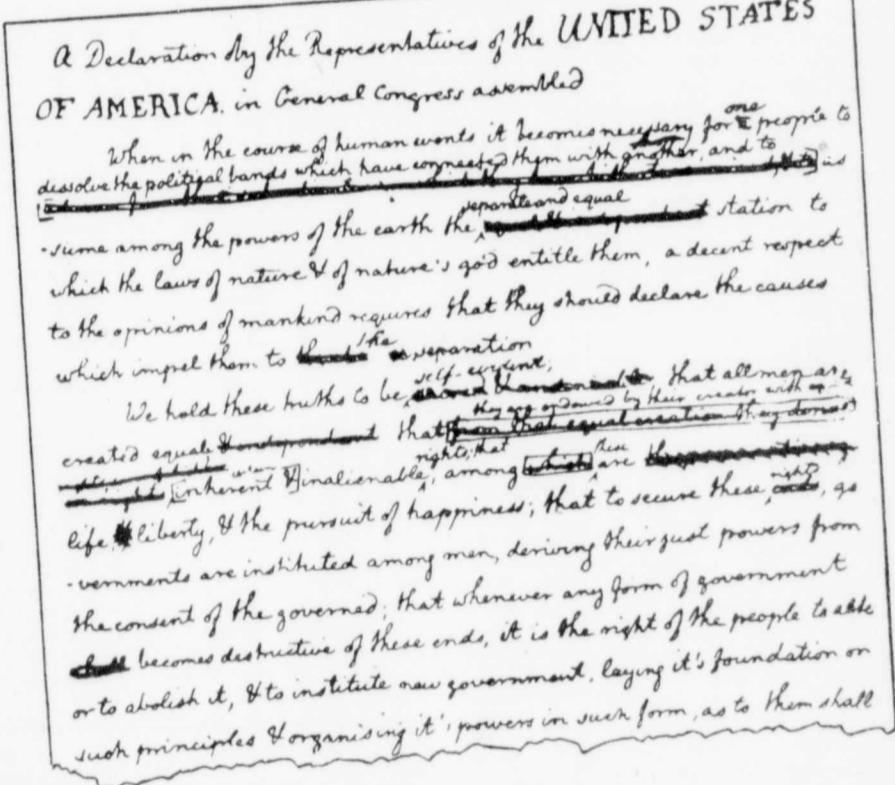 A Declaration by the Representatives of the UNITED STATES
OF AMERICA. in General Congress assembled
When in the course of human events it becomes necessary for one people to
dissolve the political bands which have connected them with another, and to as
-sume among the powers of the earth the separate and equal station to
which the laws of nature & of nature's god entitle them, a decent respect
to the opinions of mankind requires that they should declare the causes
which impel them to the separation
We hold these truths to be self-evident; that all men are
created equal that they are endowed by their creator with
[inherent &] inalienable rights; that among these are
life, liberty, & the pursuit of happiness; that to secure these rights, go
-vernments are instituted among men, deriving their just powers from
the consent of the governed; that whenever any form of government
becomes destructive of these ends, it is the right of the people to alter
or to abolish it, & to institute new government, laying it's foundation on
such principles & organising it's powers in such form, as to them shall